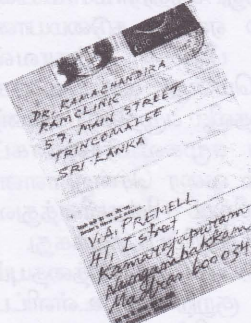 DR. RAMACHANDIRA
RAMCLINIC
57, MAIN STREET
TRINCOMALEE
SRI-LANKA
V.A. PREMELL
41, I Street
Kamarajapuram
Nungambakkam
Madras 600034